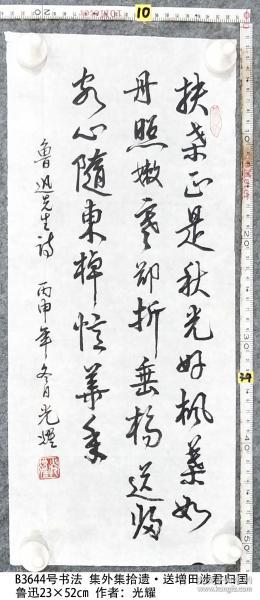 扶桑正是秋光好枫叶如
丹照嫩寒却折垂杨送归
客心随东棹忆华年
鲁迅先生诗 丙申年冬月 光耀
B3644号书法 集外集拾遗·送增田涉君归国
鲁迅23×52cm 作者：光耀